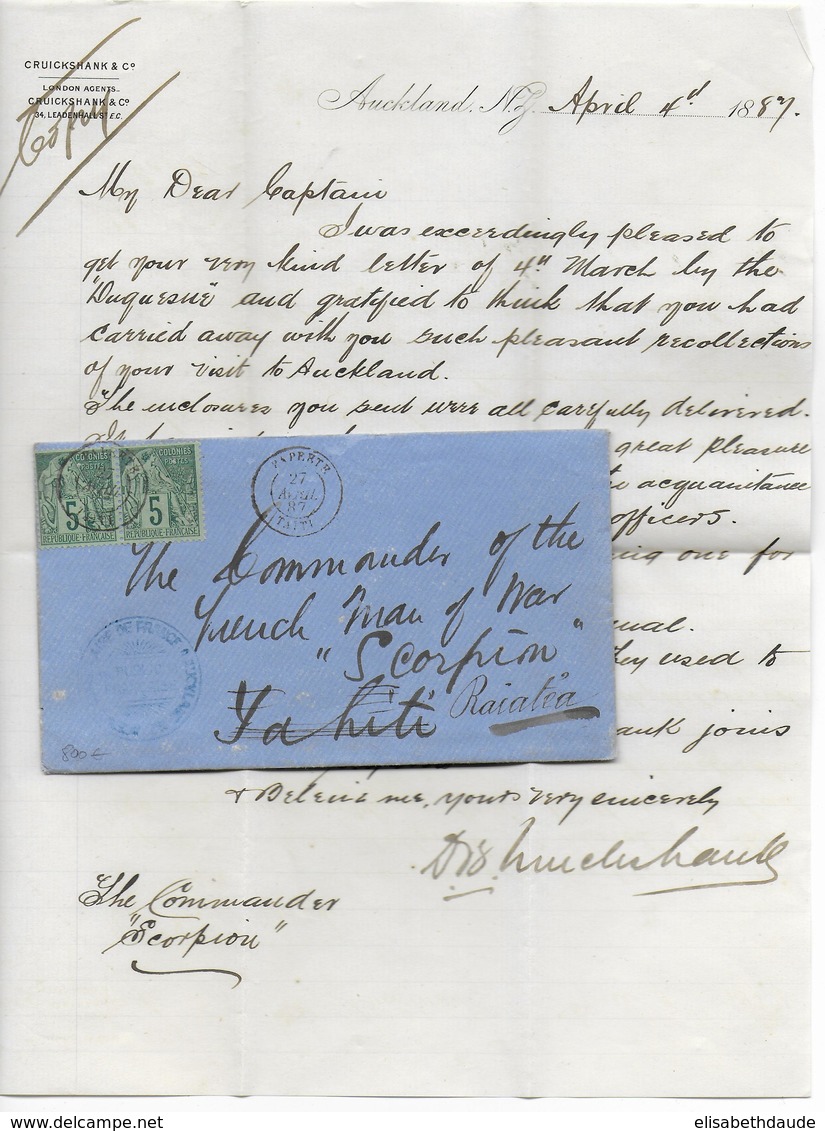 CRUICKSHANK & Cº
LONDON AGENTS.
CRUICKSHANK & Cº
34, LEADENHALL St E.C.
Copy
Auckland, N.Z. April 4th 1887.
My Dear Captain
I was exceedingly pleased to
get your very kind letter of 4th March by the
"Duquesne" and gratified to think that you had
carried away with you such pleasant recollections
of your visit to Auckland.
The enclosures you sent were all carefully delivered.
great pleasure
acquaintance
officers.
one for
they used to
joins
& Believe me, yours very sincerely
Cruickshank
The Commander
"Scorpion"
COLONIES
POSTES
5
REPUBLIQUE-FRANÇAISE
COLONIES
POSTES
5
REPUBLIQUE-FRANÇAISE
PAPEETE
27
AVRIL
87
TAITI
The Commander of the
French Man of War
"Scorpion"
Tahiti Raiatéa
DE FRANCE
800 €
elisabethdaude